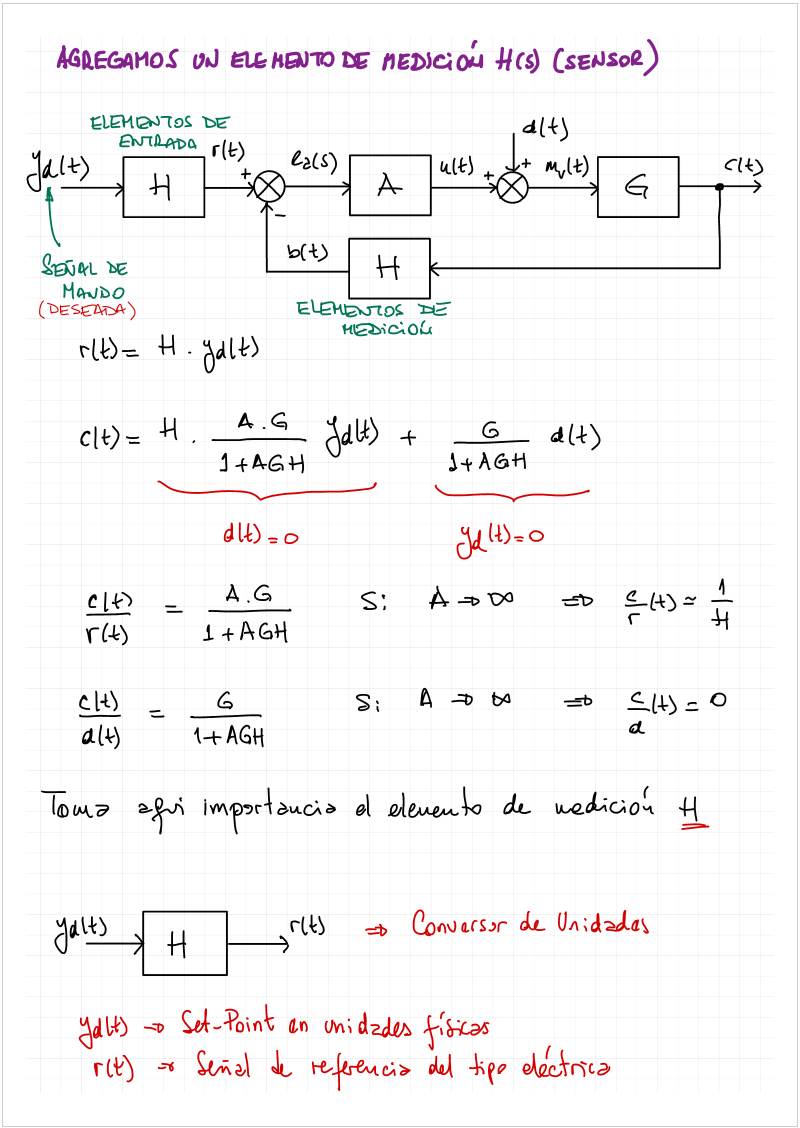 AGREGAMOS UN ELEMENTO DE MEDICIÓN H(s) (SENSOR)
ELEMENTOS DE
ENTRADA
yd(t)
H
r(t)
+
-
ea(s)
A
u(t)
+
d(t)
+
mv(t)
G
c(t)
b(t)
H
SEÑAL DE
MANDO
(DESEADA)
ELEMENTOS DE
MEDICIÓN
r(t) = H . yd(t)
c(t) = H . A.G / 1+AGH yd(t) + G / 1+AGH d(t)
d(t) = 0 yd(t) = 0
c(t) / r(t) = A.G / 1+AGH Si A → ∞ ⇒ c/r (t) ≃ 1/H
c(t) / d(t) = G / 1+AGH Si A → ∞ ⇒ c/d (t) = 0
Toma aqui importancia el elemento de medición H
yd(t) H r(t) ⇒ Conversor de Unidades
yd(t) → Set-Point en unidades físicas
r(t) → Señal de referencia del tipo eléctrica